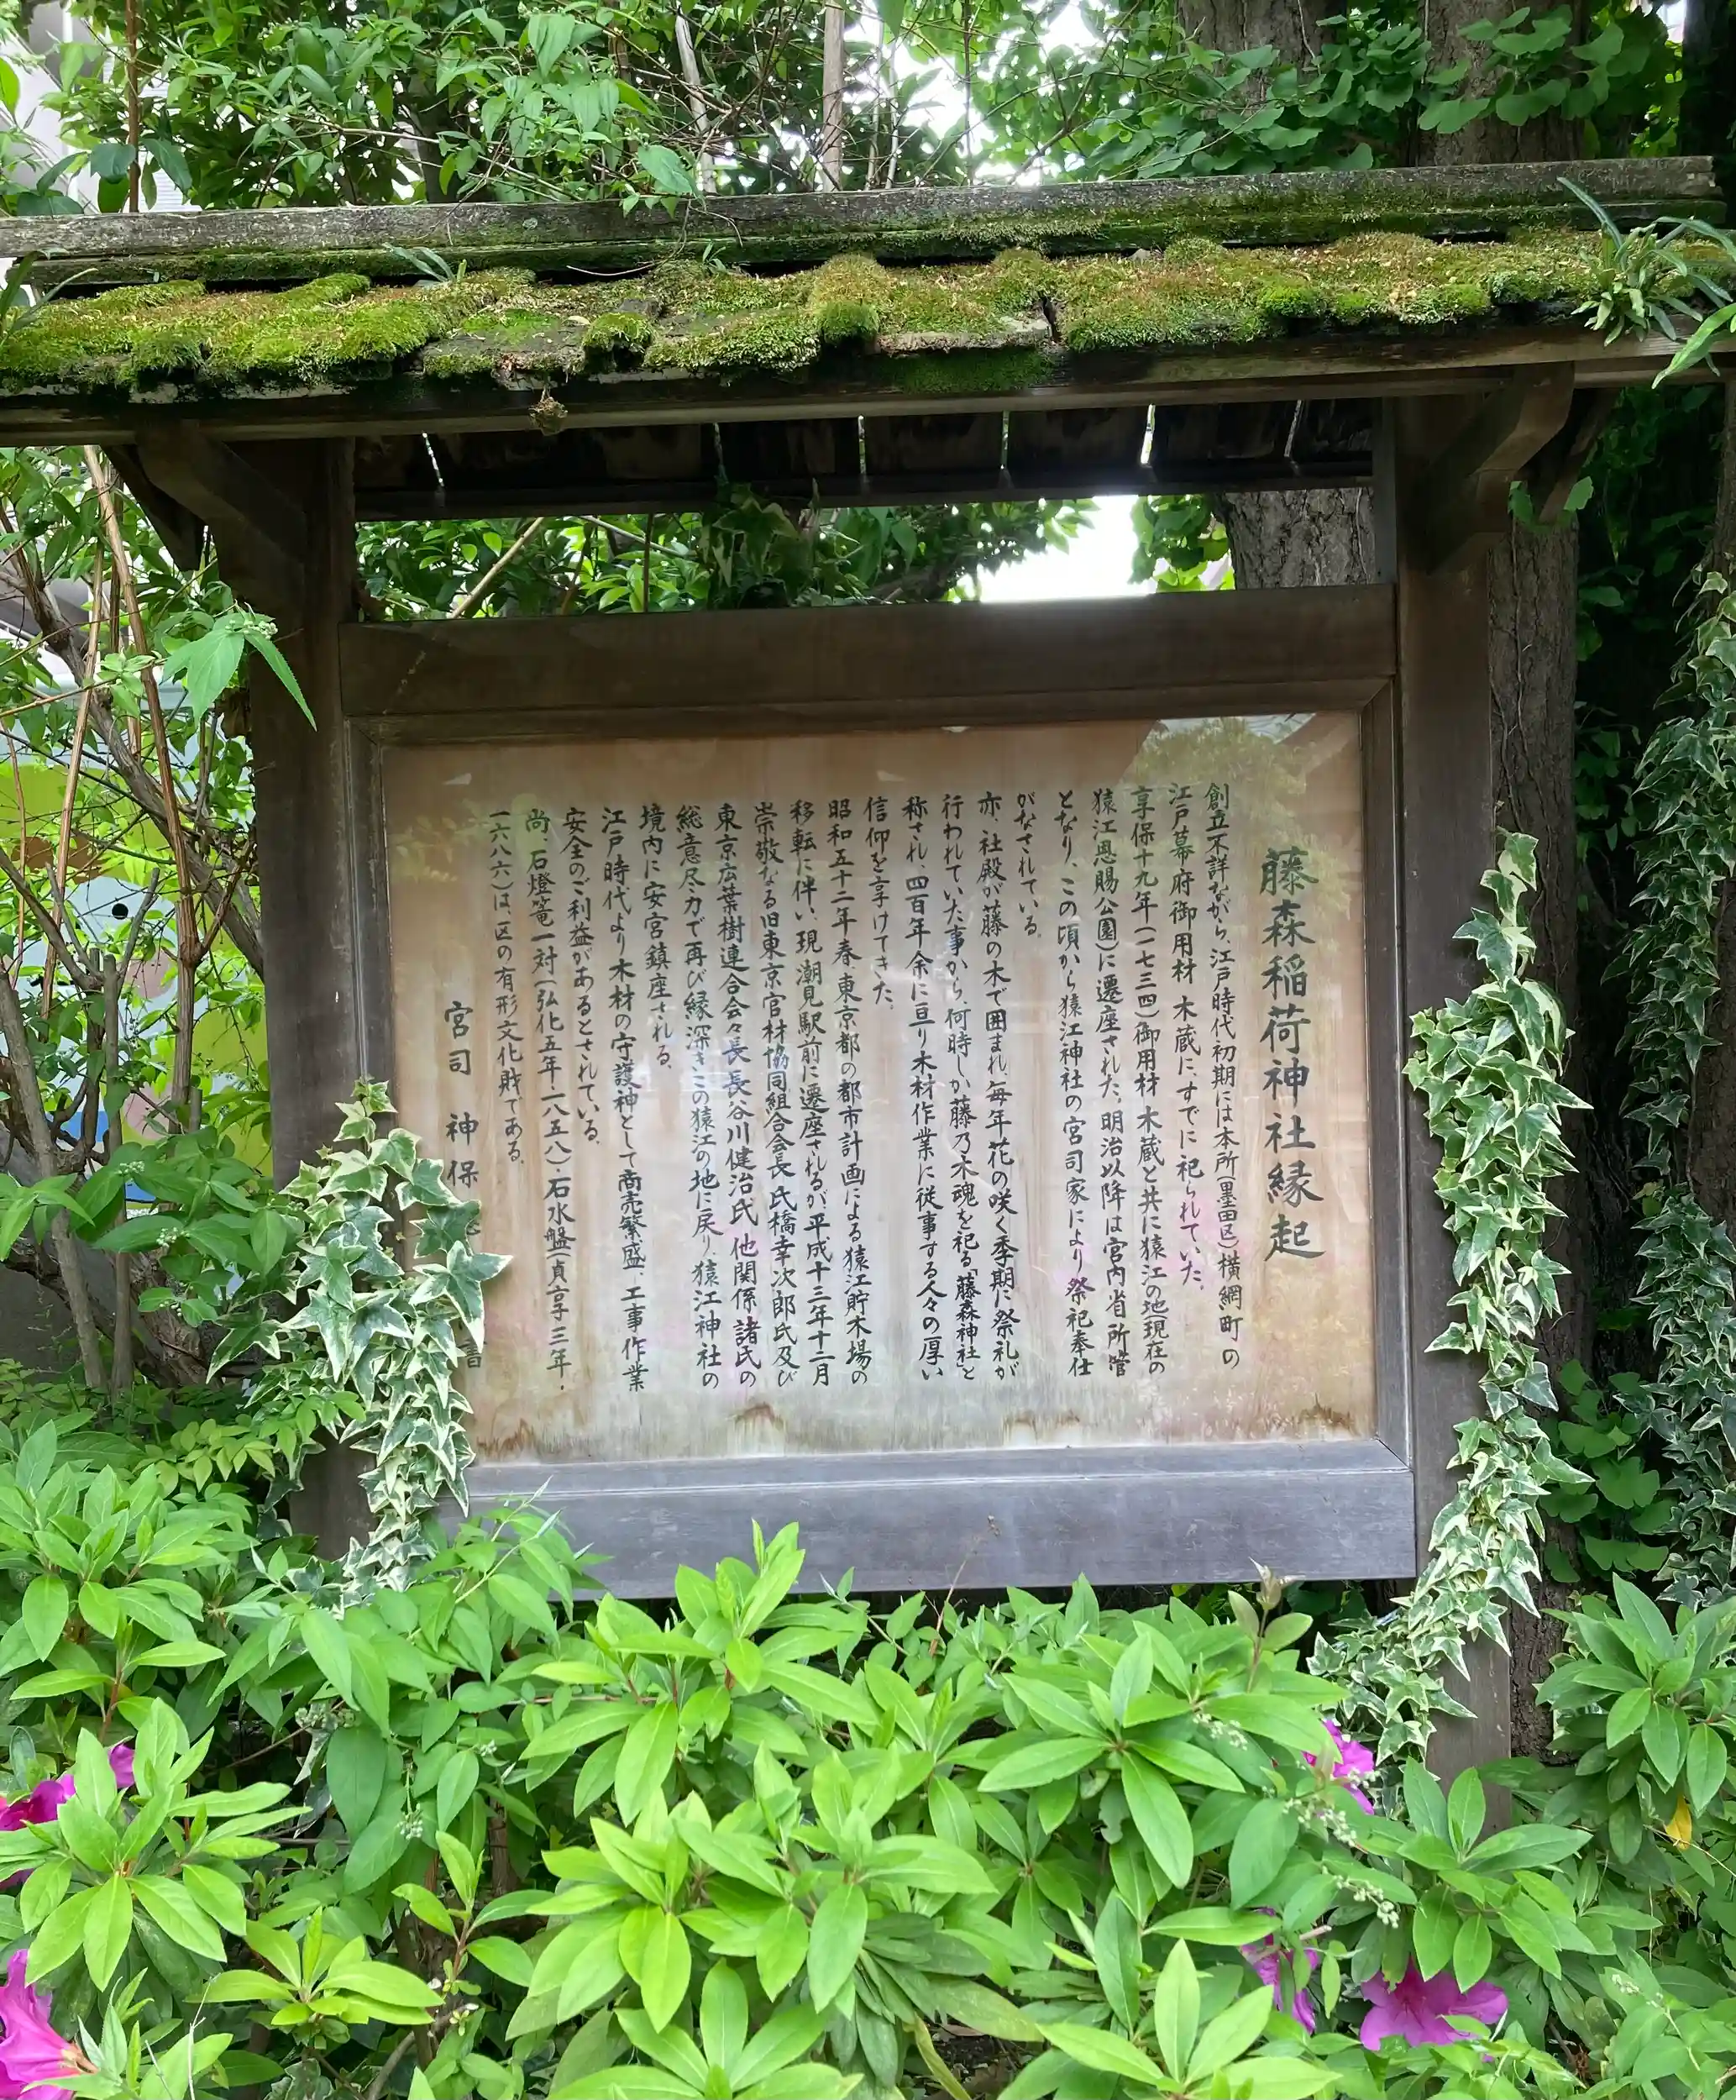 藤森稲荷神社縁起
創立不詳ながら、江戸時代初期には本所(墨田区)横網町の
江戸幕府御用材木蔵に、すでに祀られていた。
享保十九年(一七三四)御用材木蔵と共に猿江の地(現在の
猿江恩賜公園)に遷座された。明治以降は宮内省所管
となり、この頃から猿江神社の宮司家により祭祀奉仕
がなされている。
亦、社殿が藤の木で囲まれ、毎年花の咲く季期に祭礼が
行われていた事から、何時しか藤乃木魂を祀る「藤森神社」と
称され、四百年余に亘り木材作業に従事する人々の厚い
信仰を享けてきた。
昭和五十二年春、東京都の都市計画による猿江貯木場の
移転に伴い、現潮見駅前に遷座されるが平成十三年十二月
崇敬なる旧東京官材協同組合会長氏橋幸次郎氏及び
東京広葉樹連合会々長長谷川健治氏他関係諸氏の
総意尽力で再び縁深きこの猿江の地に戻り、猿江神社の
境内に安宮鎮座される。
江戸時代より木材の守護神として商売繁盛、工事作業
安全のご利益があるとされている。
尚、石燈篭一対(弘化五年・一八五八)石水盤(貞享三年・
一六八六)は、区の有形文化財である。
宮司 神保 書